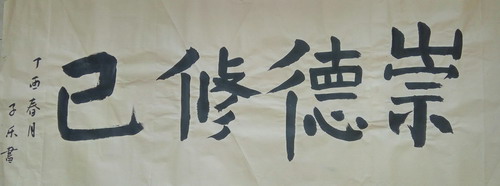 崇德修己
丁酉春月
子乐書